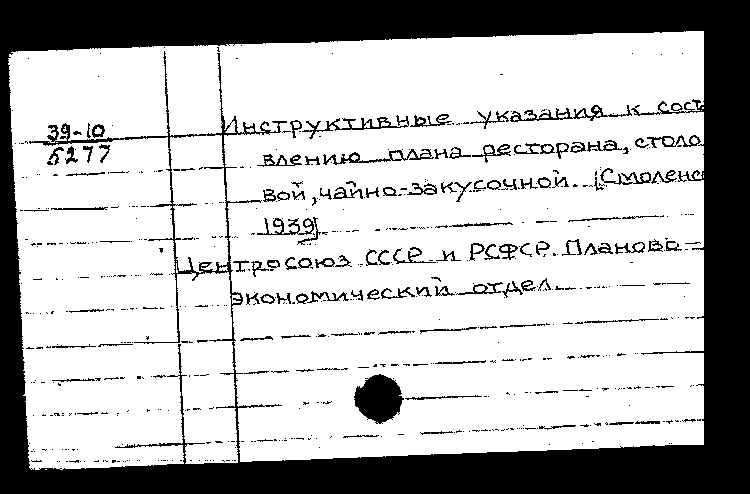 39-10
5277
Инструктивные указания к сост
влению плана ресторана, столо
вой, чайно-закусочной. [Смоленс
1939]
Центросоюз СССР и РСФСР. Планово-
экономический отдел.